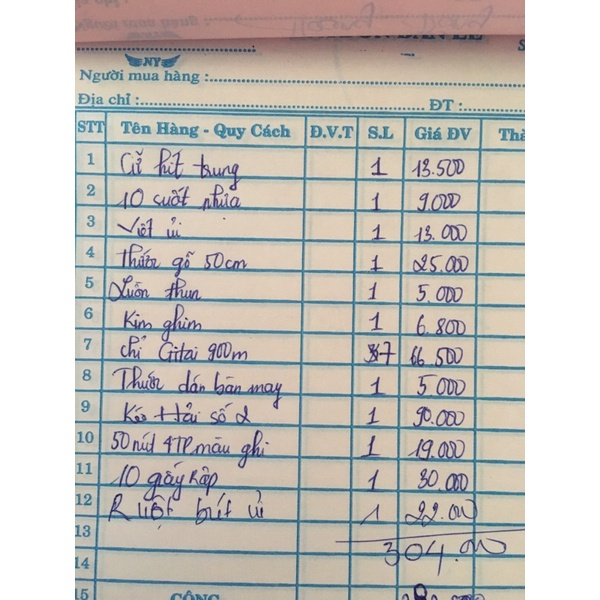 NY
Người mua hàng :
Địa chỉ : ĐT :
STT Tên Hàng - Quy Cách Đ.V.T S.L Giá ĐV Thà
1 Cữ hít trung 1 13.500
2 10 suốt nhựa 1 9.000
3 Viết ủi 1 13.000
4 Thước gỗ 50cm 1 25.000
5 Luồn thun 1 5.000
6 Kim ghim 1 6.800
7 chỉ Gitai 900m 7 66.500
8 Thước dán bàn may 1 5.000
9 Kéo Hải số 2 1 90.000
10 50 nút 4TP màu ghi 1 19.000
11 10 giấy Rập 1 30.000
12 Ruột bút ủi 1 22.000
13 304.000
14
15 CỘNG